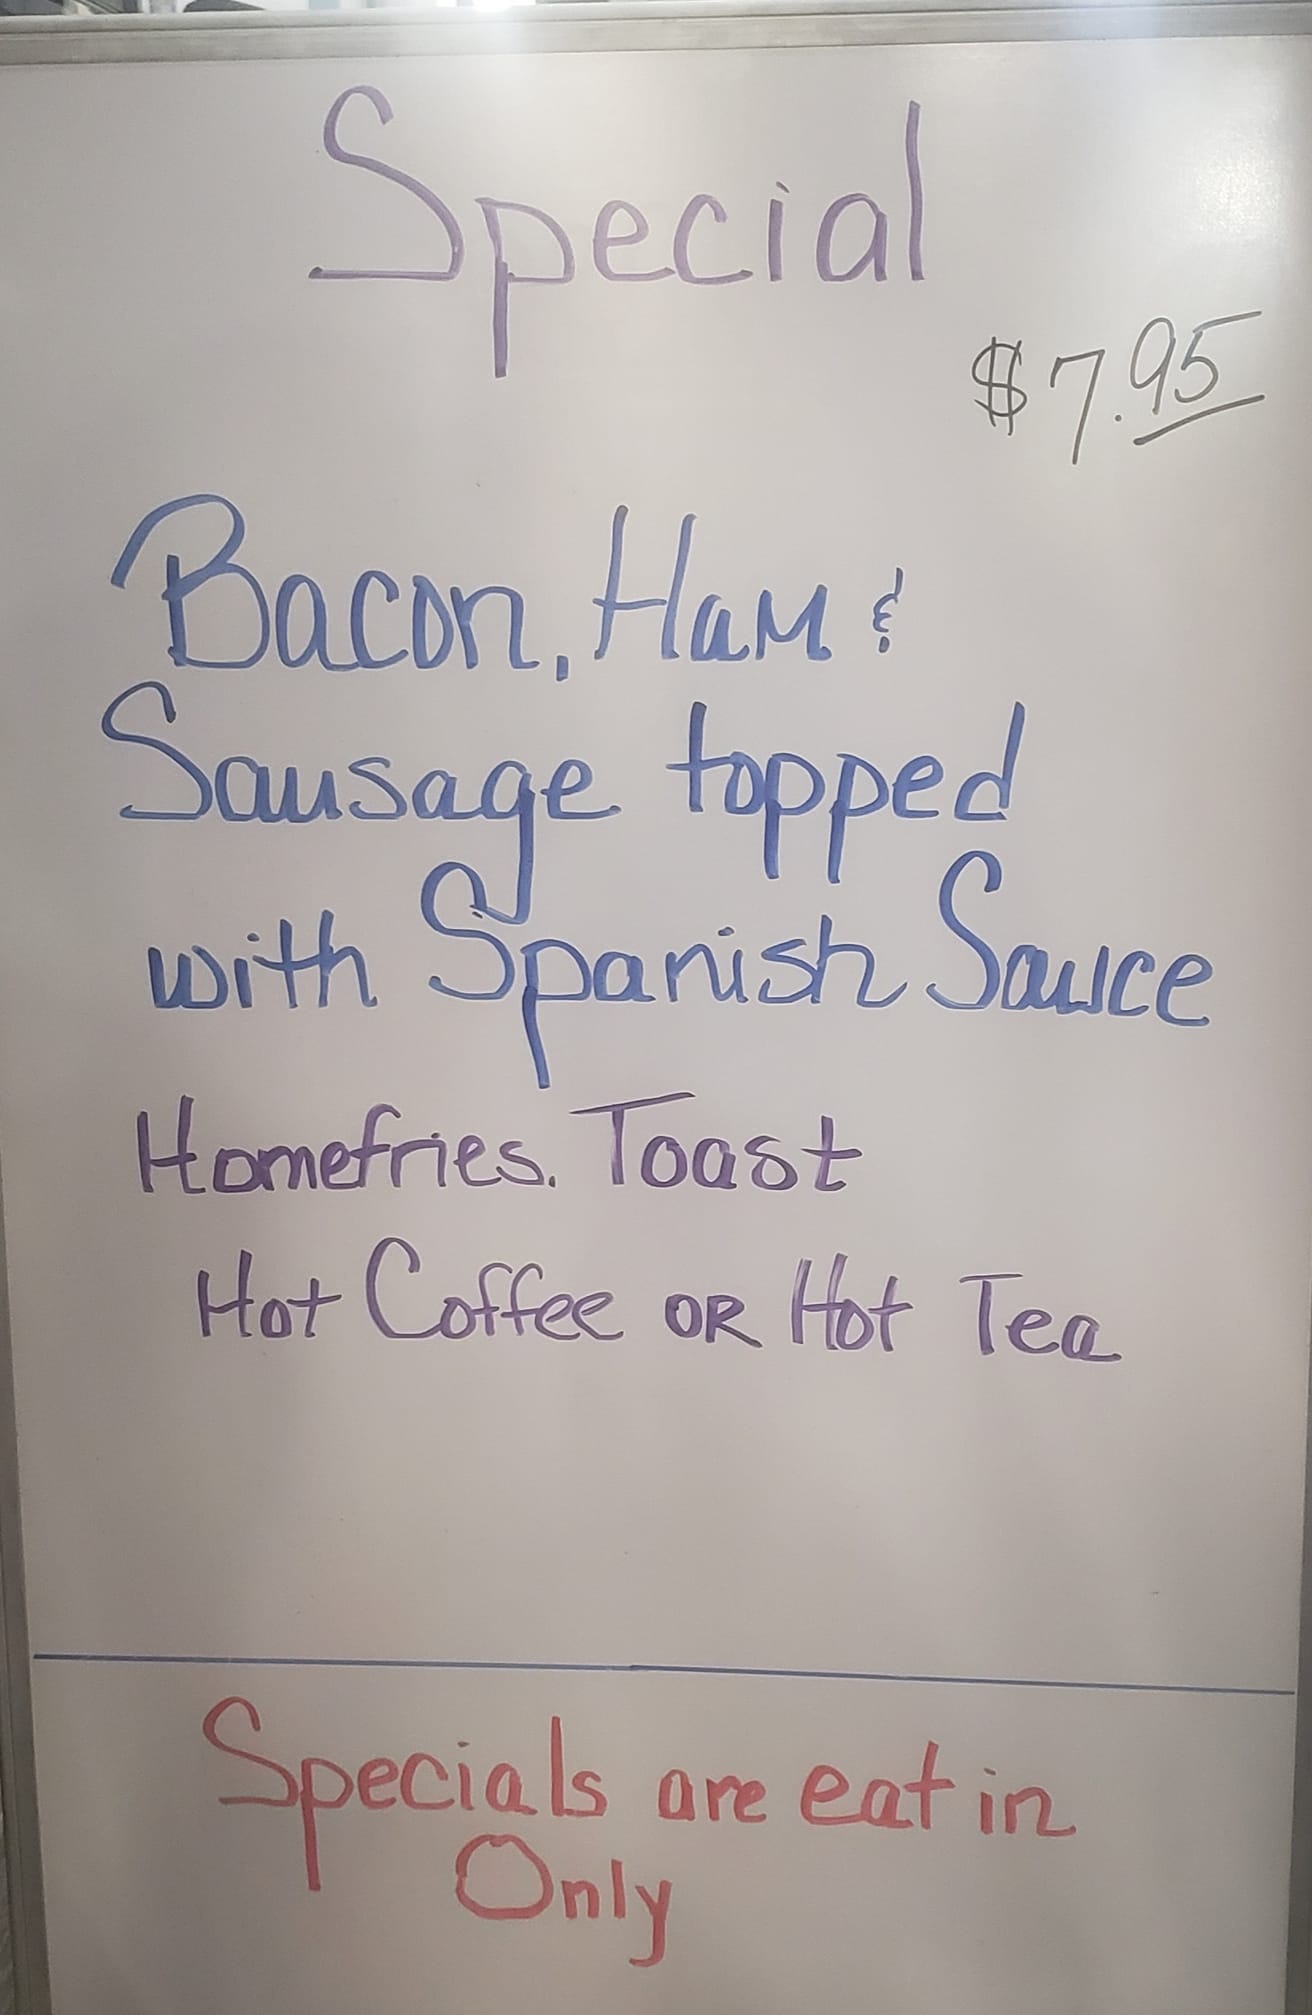 Special
$7.95
Bacon, Ham &
Sausage topped
with Spanish Sauce
Homefries. Toast
Hot Coffee OR Hot Tea
Specials are eat in
Only